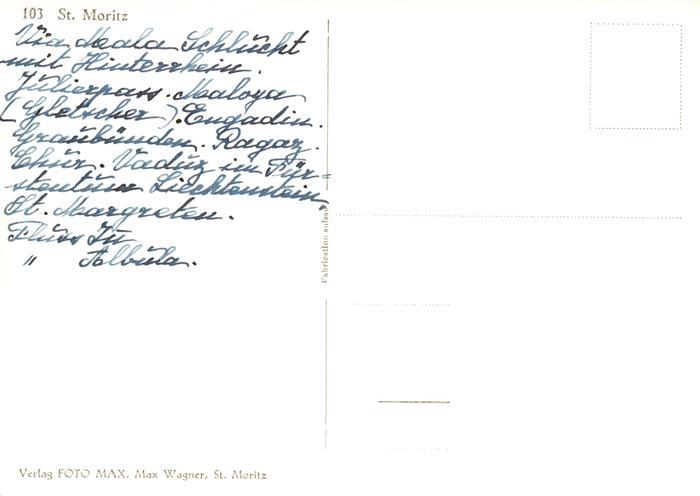 103 St. Moritz
Via Mala Schlucht
mit Hinterrhein.
Julierpass. Maloya
(Gletscher). Engadin.
Graubünden. Ragaz.
Chur. Vaduz im Für=
stentum Liechtenstein,
St. Margreten.
Fluss In
" Albula.
Fabrication suisse
Verlag FOTO MAX, Max Wagner, St. Moritz